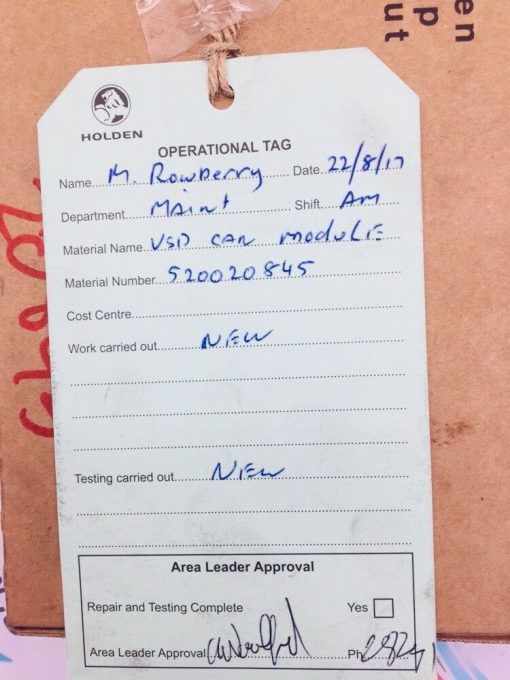 en
p
ut
HOLDEN
OPERATIONAL TAG
Name M. Rowberry Date 22/8/17
Department MAint Shift AM
Material Name VSD CAN MODULE
Material Number 520020845
Cost Centre
Work carried out NEW
Testing carried out NEW
Area Leader Approval
Repair and Testing Complete Yes
Area Leader Approval Ph